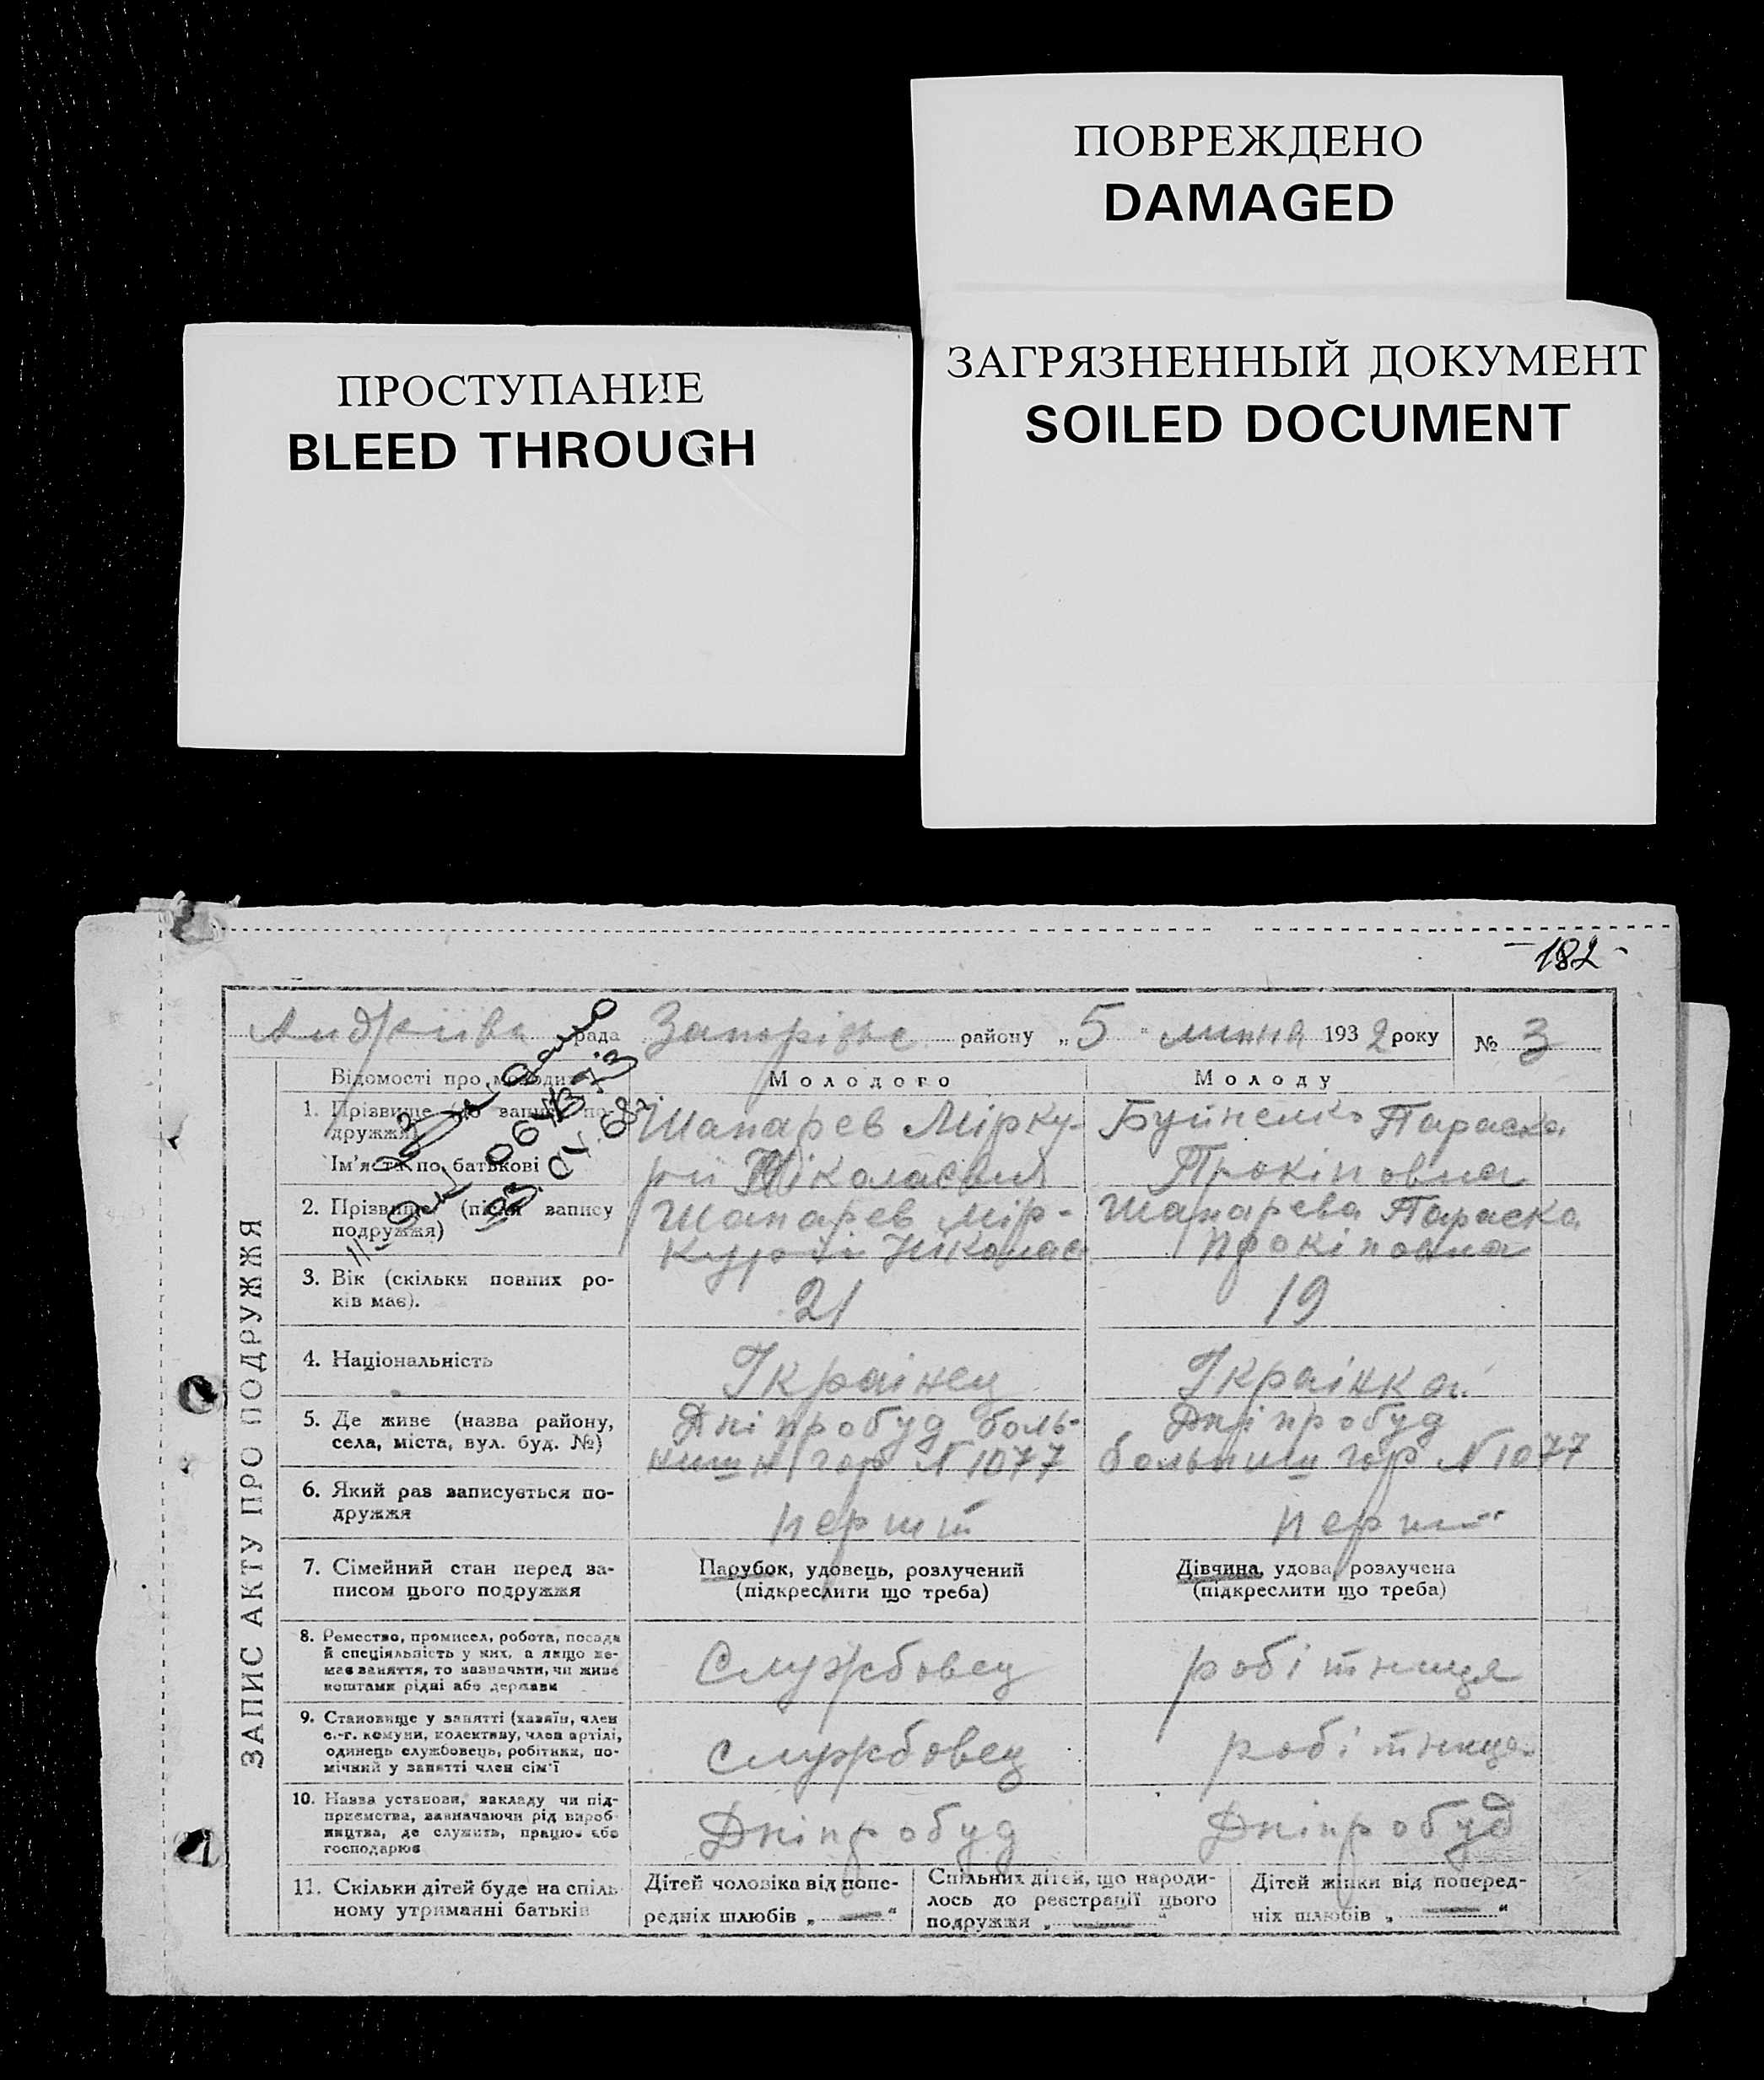 ПОВРЕЖДЕНО
DAMAGED
ПРОСТУПАНИЕ
BLEED THROUGH
ЗАГРЯЗНЕННЫЙ ДОКУМЕНТ
SOILED DOCUMENT
182
рада району „5“ липня 1932 року № 3
ЗАПИС АКТУ ПРО ПОДРУЖЖЯ
Відомості про
Молодого
Молоду
1. Прізвище (до запису по-
дружжя)
Ім'я та по батькові
Шапарев Мірку-
рій Ніколаевич
Буйненко Параска
Прокіповна
2. Прізвище (після запису
подружжя)
Шапарев Мір-
курій Ніколае
Шапарева Параска
Прокіповна
3. Вік (скільки повних ро-
ків має).
21
19
4. Національність
Украінец
Украінка
5. Де живе (назва району,
села, міста, вул. буд. №)
Дніпробуд боль-
гор N 1077
Дніпробуд
гор N 1077
6. Який раз записується по-
дружжя
перш
7. Сімейний стан перед за-
писом цього подружжя
Парубок, удовець, розлучений
(підкреслити що треба)
Дівчина, удова, розлучена
(підкреслити що треба)
8. Ремество, промисел, робота, посада
й спеціяльність у них, а якщо не-
має заняття, то зазначити, чи живе
коштами рідні або держави
Службовец
робітниця
9. Становище у занятті (хазяїн, член
с.-г. комуни, колективу, член артілі,
одинець службовець, робітник, по-
мічний у занятті член сім'ї
службовец
робітниця
10. Назва установи, закладу чи під-
приємства, зазначаючи рід вироб-
ництва, де служить, працює або
господарює
Дніпробуд
Дніпробуд
11. Скільки дітей буде на спіль-
ному утриманні батьків
Дітей чоловіка від попе-
редніх шлюбів „ — “
Спільних дітей, що народи-
лось до реєстрації цього
подружжя „ — “
Дітей жінки від поперед-
ніх шлюбів „ — “